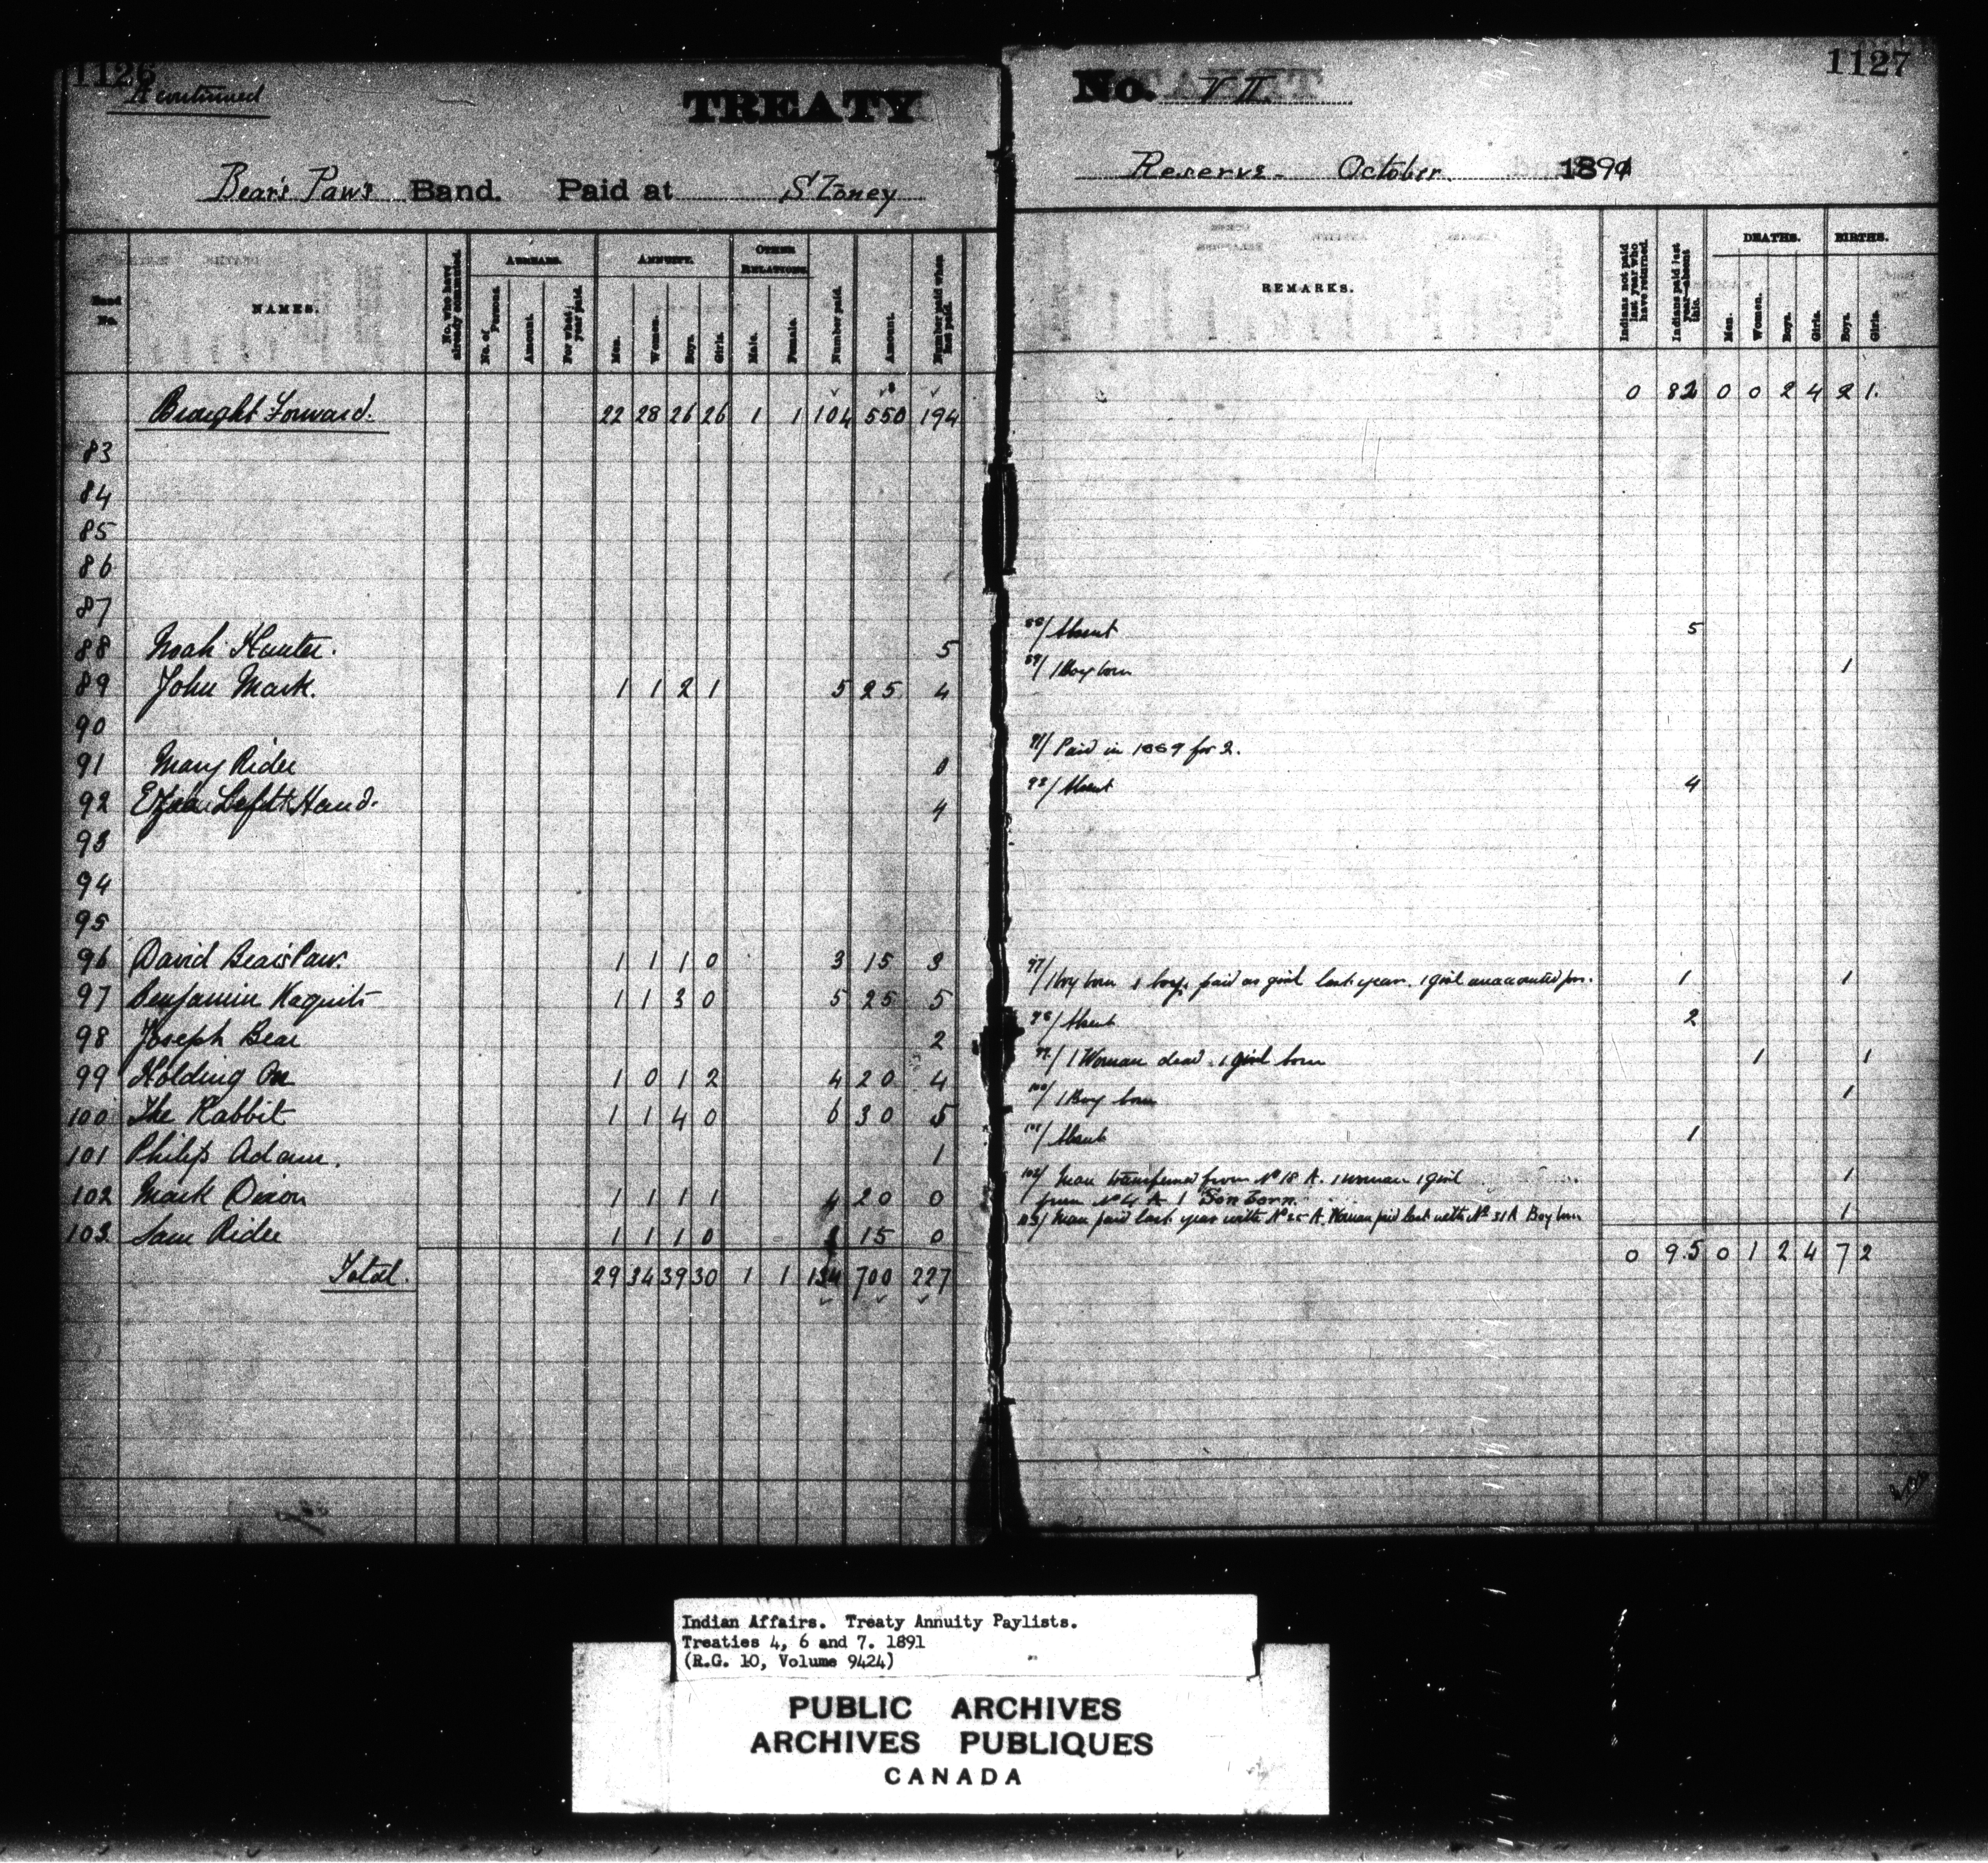 1126
A continued
TREATY
Bear's Paw's Band. Paid at Stoney
Band No.
NAMES.
No. who have already commuted.
ARREARS.
No. of Persons.
Amount.
For what year paid.
ANNUITY.
Men.
Women.
Boys.
Girls.
OTHER RELATIONS.
Male.
Female.
Number paid.
Amount.
Number paid when last paid.
Brought Forward. 22 28 26 26 1 1 104 550 194
83
84
85
86
87
88 Noah Hunter. 5
89 John Mark. 1 1 2 1 5 25 4
90
91 Mary Rider 0
92 Left Hand. 4
93
94
95
96 David Bear's Paw. 1 1 1 0 3 15 3
97 Benjamin Kaquits 1 1 3 0 5 25 5
98 Joseph Bear 2
99 Holding On 1 0 1 2 4 20 4
100 The Rabbit 1 1 4 0 6 30 5
101 Philip Adam. 1
102 Mark Dixon 1 1 1 1 4 20 0
103 Sam Rider 1 1 1 0 3 15 0
Total. 29 34 39 30 1 1 134 700 227
1127
No. VII.
Reserve - October. 1891
REMARKS.
Indians not paid last year who have returned.
Indians paid last year—absent this.
DEATHS.
Men.
Women.
Boys.
Girls.
BIRTHS.
Boys.
Girls.
0 82 0 0 2 4 2 1.
88/ Absent 5
89/ 1 Boy born 1
91/ Paid in 1889 for 2.
92/ Absent 4
97/ 1 boy born 1 boy paid as girl last year. 1 girl unaccounted for. 1 1
98/ Absent 2
99/ 1 Woman dead. 1 girl born 1 1
100/ 1 Boy born 1
101/ Absent 1
102/ Man transferred from No 18 A. 1 woman 1 girl 1
from No 4 A 1 Son born.
103/ Man paid last year with No 25 A. Woman paid last with No 31 A Boy born 1
0 95 0 1 2 4 7 2
Indian Affairs. Treaty Annuity Paylists.
Treaties 4, 6 and 7. 1891
(R.G. 10, Volume 9424)
PUBLIC ARCHIVES
ARCHIVES PUBLIQUES
CANADA